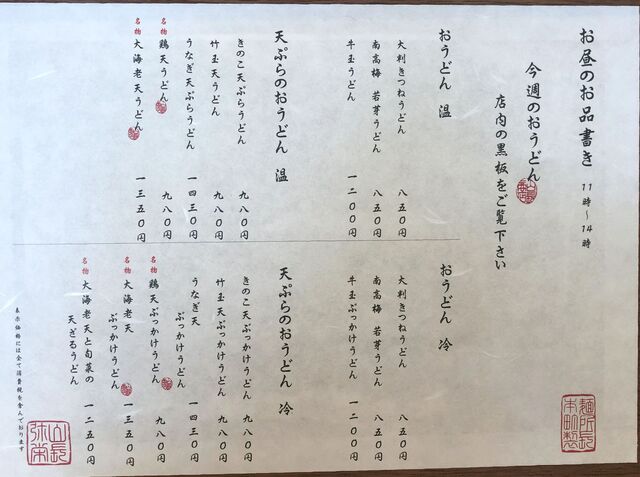 お昼のお品書き 11時〜14時
今週のおうどん
店内の黒板をご覧下さい
おうどん 温
大判きつねうどん 八五〇円
南高梅 若芽うどん 八五〇円
牛玉うどん 一二〇〇円
天ぷらのおうどん 温
きのこ天ぷらうどん 九八〇円
竹玉天うどん 九八〇円
うなぎ天ぷらうどん 一四三〇円
名物 鶏天うどん 九八〇円
名物 大海老天うどん 一三五〇円
おうどん 冷
大判きつねうどん 八五〇円
南高梅 若芽うどん 八五〇円
牛玉ぶっかけうどん 一二〇〇円
天ぷらのおうどん 冷
きのこ天ぶっかけうどん 九八〇円
竹玉天ぶっかけうどん 九八〇円
うなぎ天
ぶっかけうどん 一四三〇円
名物 鶏天ぶっかけうどん 九八〇円
名物 大海老天
ぶっかけうどん 一三五〇円
名物 大海老天と旬菜の
天ざるうどん 一二五〇円
表示価格には全て消費税を含んでおります